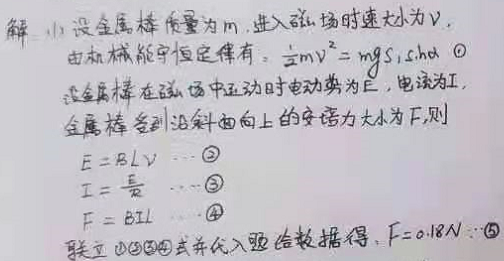 解 (1) 设金属棒质量为m,进入磁场时速大小为v,
由机械能守恒定律有. ½mv² = mgs₁sinα ①
设金属棒在磁场中运动时电动势为E, 电流为I,
金属棒受到沿斜面向上的安培力大小为F,则
E = BLv ··· ②
I = E/R ··· ③
F = BIL ··· ④
联立①②③④式并代入题给数据得. F=0.18N ··⑤